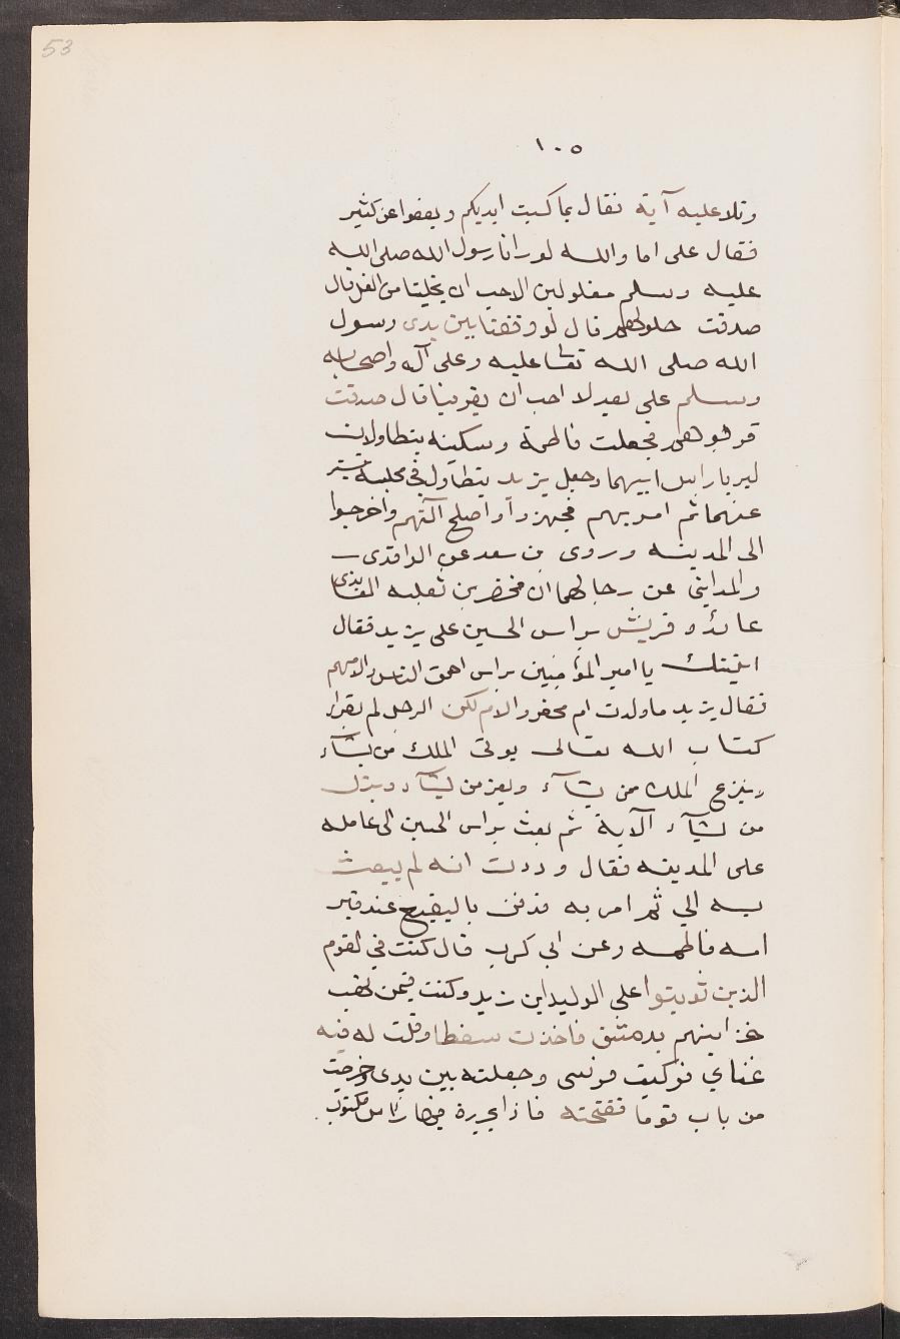 53
١٠٥
وتلا عليه آية فقال بما كسبت ايديكم ويعفوا عن كثير
فقال على اما والله لو رانا رسول الله صلى الله
عليه وسلم مغلولين لاحب ان يخلينا من الغل قال
صدقت حلوهم قال لو وقفنا بين يدى رسول
الله صلى الله تعا عليه وعلى آله واصحابه
وسلم على بعد لاحب ان يقربنا قال صدقت
قربوهم فجعلت فاطمة وسكينه يتطاولان
ليريا راس ابيهما وجعل يزيد يتطاول في مجلسه يستر
عنهما ثم امر بهم فجهزوا واصلح آلتهم واخرجوا
الى المدينه وروى بن سعد عن الواقدى
والمدايني عن رجالهما ان محفز بن ثعلبه
عائذة قريش براس الحسين على يزيد فقال
اتيتك يا امير المؤمنين براس احمق الناس والامهم
فقال يزيد ما ولدت ام محفز والام لكن الرجل لم يقرا
كتاب الله تعالى يوتى الملك من يشآء
وينزع الملك ممن يشآء ويعز من يشآء ويذل
من يشآء الآية ثم بعث براس الحسين الى عامله
على المدينه فقال وددت انه لم يبعث
به الي ثم امر به فدفن بالبقيع عند قبر
امه فاطمه وعن ابي كرب قال كنت في القوم
الذين ثوبتوا على الوليد ابن زيد وكنت فيمن نهب
خزاينهم بدمشق فاخذت سفطا وقلت له فيه
غناي فركبت فرسى وجعلته بين يدى وخرجت
من باب توما ففتحته فاذا بحريرة فيها راس مكتوب